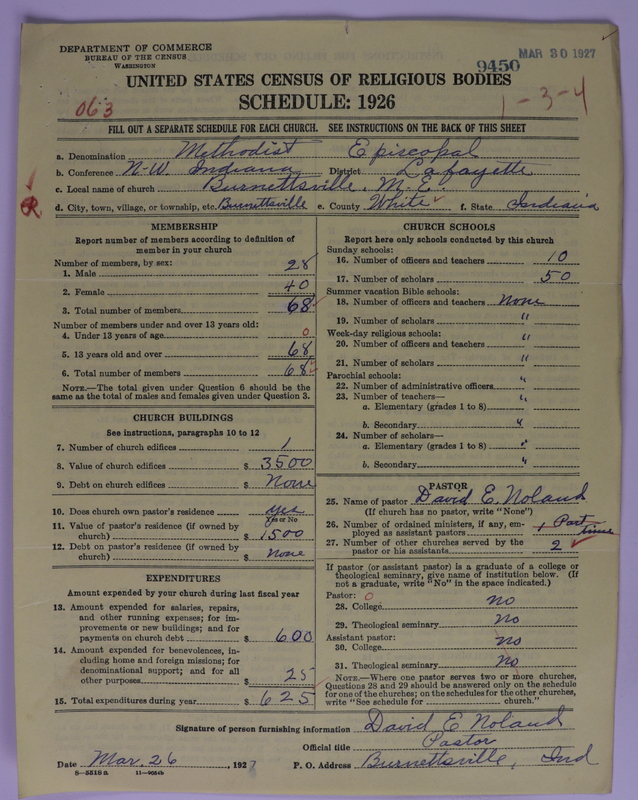 DEPARTMENT OF COMMERCE
BUREAU OF THE CENSUS
WASHINGTON
MAR 30 1927
9450
UNITED STATES CENSUS OF RELIGIOUS BODIES
SCHEDULE: 1926
063
1-3-4
FILL OUT A SEPARATE SCHEDULE FOR EACH CHURCH. SEE INSTRUCTIONS ON THE BACK OF THIS SHEET
a. Denomination Methodist Episcopal
b. Conference N-W. Indiana District Lafayette
c. Local name of church Burnettsville, M.E.
d. City, town, village, or township, etc. Burnettsville e. County White f. State Indiana
R
MEMBERSHIP
Report number of members according to definition of
member in your church
Number of members, by sex:
1. Male 28
2. Female 40
3. Total number of members 68
Number of members under and over 13 years old:
4. Under 13 years of age 0
5. 13 years old and over 68
6. Total number of members 68
NOTE.—The total given under Question 6 should be
same as the total of males and females given under Question 3.
CHURCH BUILDINGS
See instructions, paragraphs 10 to 12
7. Number of church edifices 1
8. Value of church edifices $ 3500
9. Debt on church edifices $ None
10. Does church own pastor's residence yes
Yes or No
11. Value of pastor's residence (if owned by
church) $ 1500
12. Debt on pastor's residence (if owned by
church) $ none
EXPENDITURES
Amount expended by your church during last fiscal year
13. Amount expended for salaries, repairs,
and other running expenses; for im-
provements or new buildings; and for
payments on church debt $ 600
14. Amount expended for benevolences, in-
cluding home and foreign missions; for
denominational support; and for all
other purposes $ 25
15. Total expenditures during year $ 625
CHURCH SCHOOLS
Report here only schools conducted by this church
Sunday schools:
16. Number of officers and teachers 10
17. Number of scholars 50
Summer vacation Bible schools:
18. Number of officers and teachers None
19. Number of scholars "
Week-day religious schools:
20. Number of officers and teachers "
21. Number of scholars "
Parochial schools:
22. Number of administrative officers "
23. Number of teachers—
a. Elementary (grades 1 to 8) "
b. Secondary "
24. Number of scholars—
a. Elementary (grades 1 to 8) "
b. Secondary "
PASTOR
25. Name of pastor David E. Noland
(If church has no pastor, write "None")
26. Number of ordained ministers, if any, em-
ployed as assistant pastors 1 Part time
27. Number of other churches served by the
pastor or his assistants 2
If pastor (or assistant pastor) is a graduate of a college or
theological seminary, give name of institution below. (If
not a graduate, write "No" in the space indicated.)
Pastor: 0
28. College no
29. Theological seminary No
Assistant pastor:
30. College no
31. Theological seminary No
NOTE.—Where one pastor serves two or more churches,
Questions 28 and 29 should be answered only on the schedule
for one of the churches; on the schedules for the other churches,
write "See schedule for church."
Signature of person furnishing information David E Noland
Official title Pastor
Date Mar. 26, 1927 P. O. Address Burnettsville, Ind
8—5518a 11—9664b